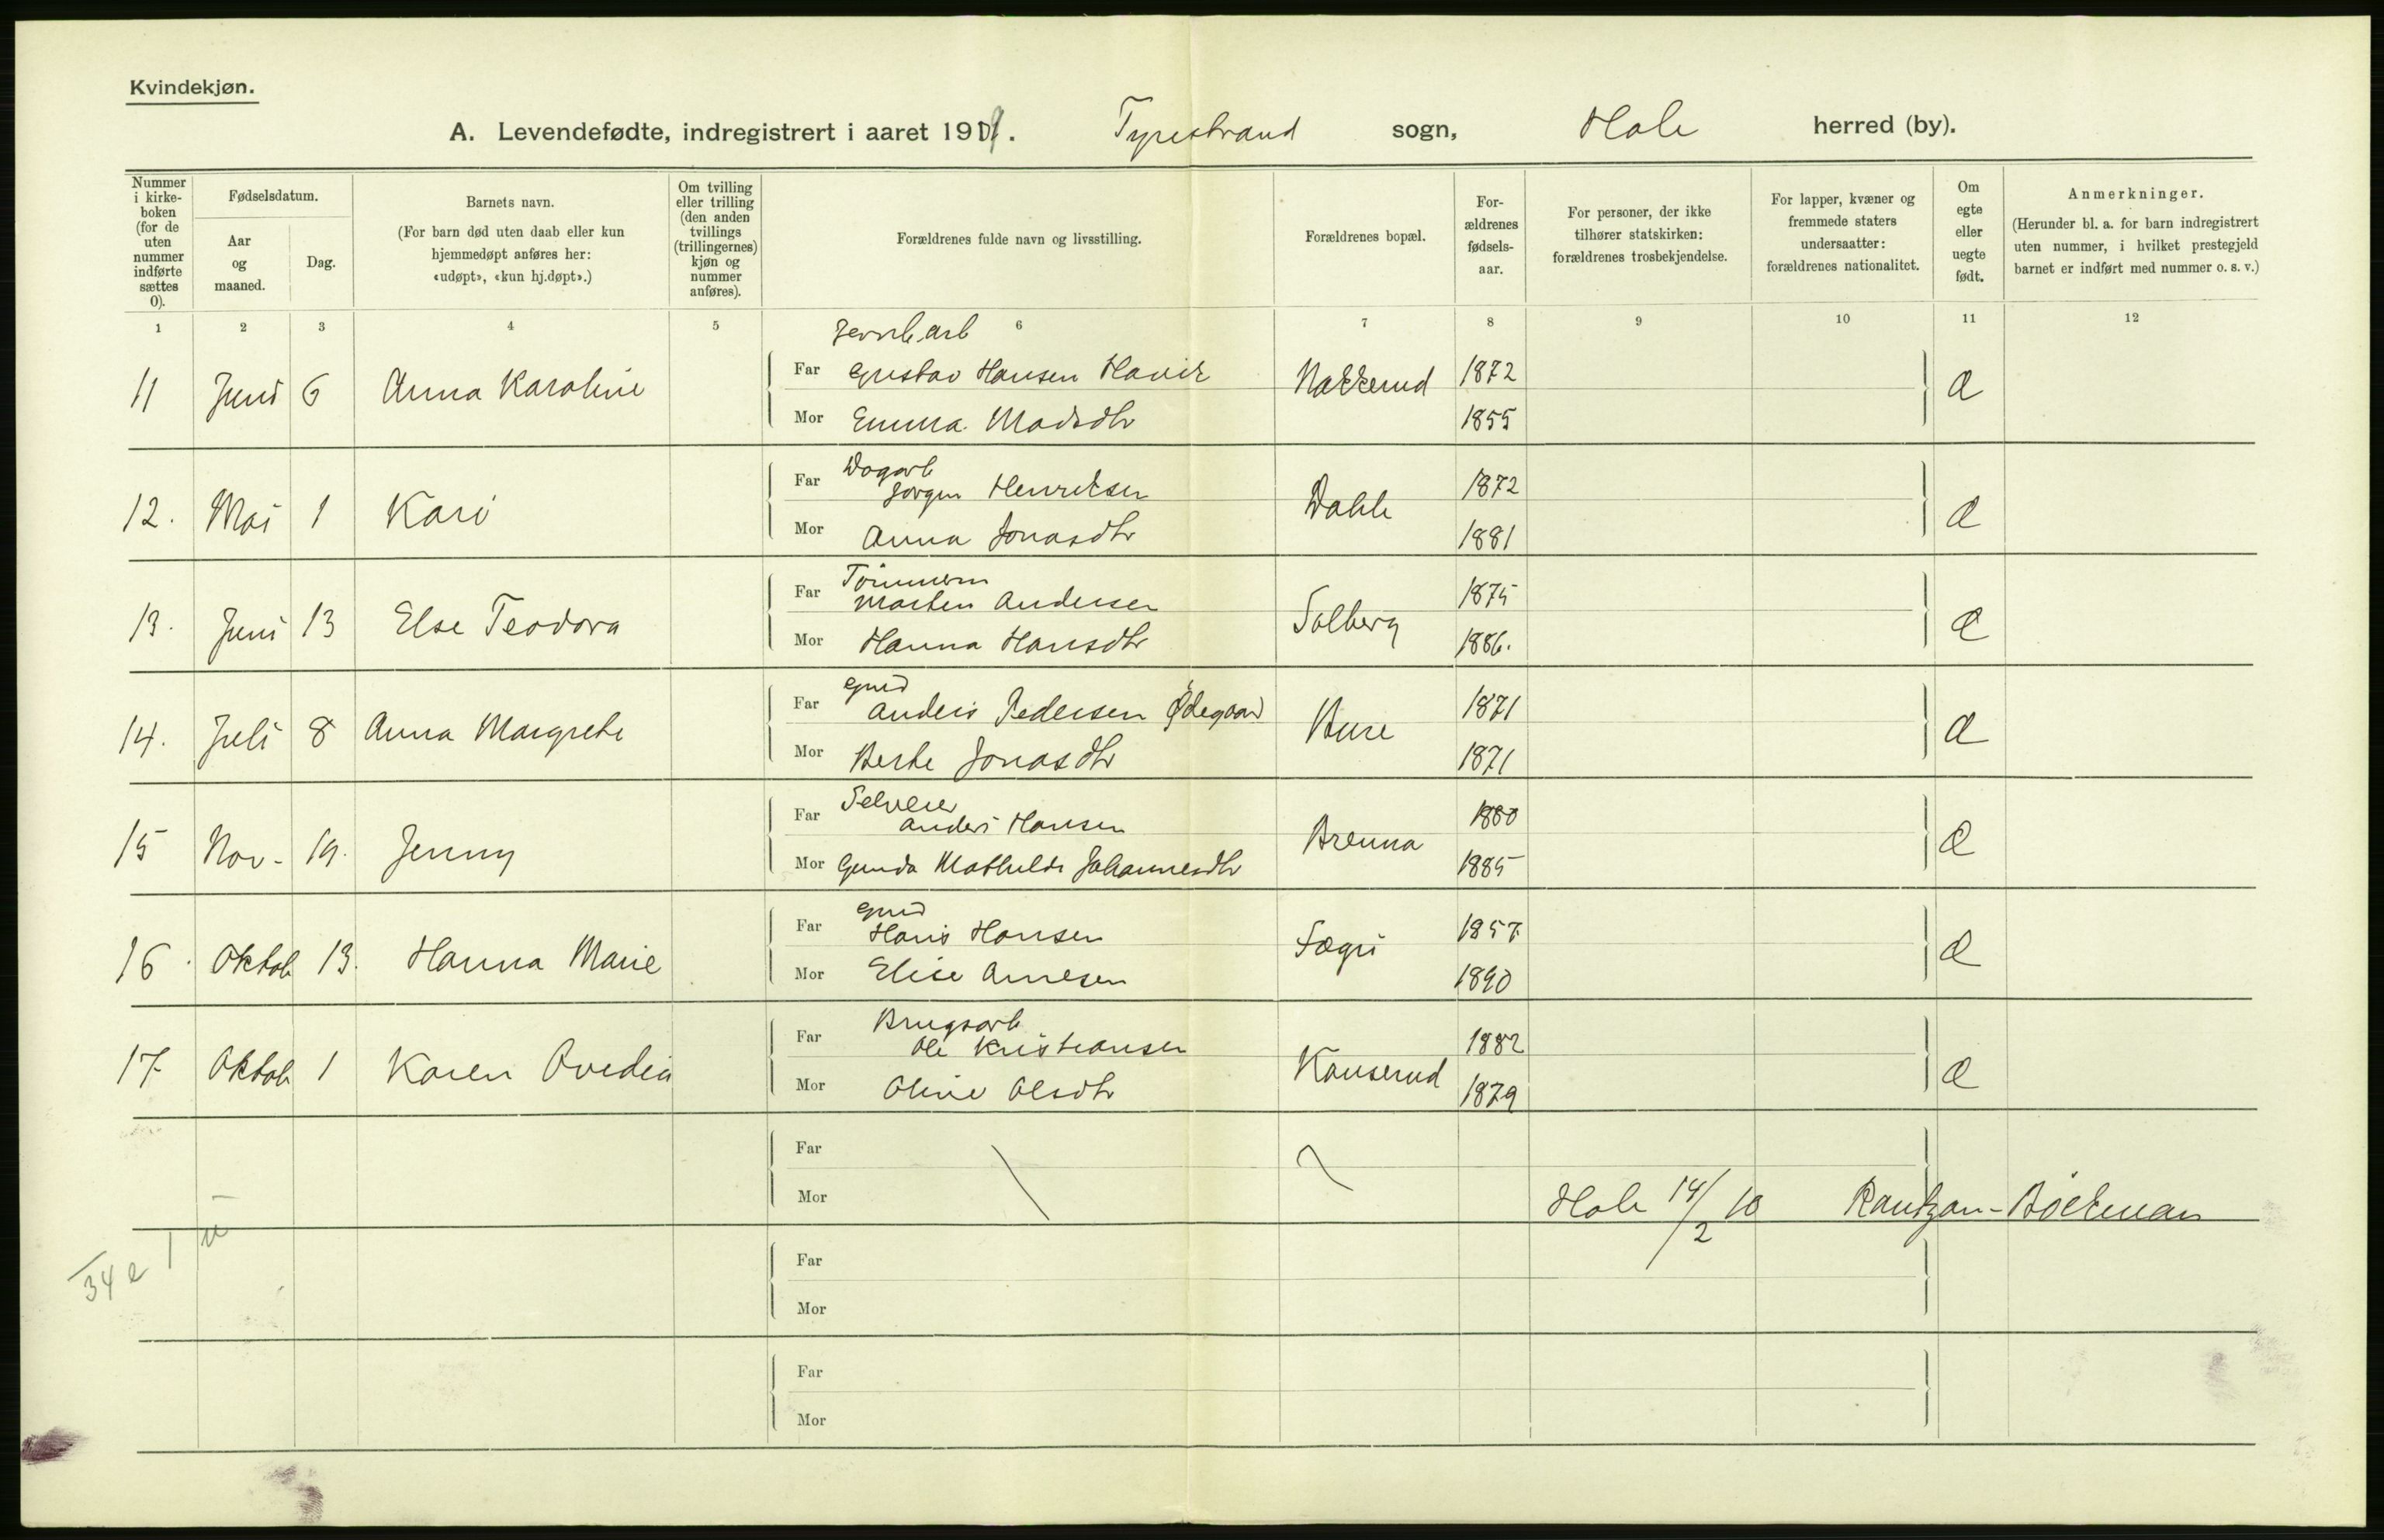 Kvindekjøn.
A. Levendefødte, indregistrert i aaret 1909. Tyristrand sogn, Hole herred (by).
Nummer i kirke-boken (for de uten nummer indførte sættes 0).
Fødselsdatum.
Aar og maaned.
Dag.
Barnets navn.
(For barn død uten daab eller kun hjemmedøpt anføres her: «udøpt», «kun hj.døpt».)
Om tvilling eller trilling (den anden tvillings (trillingernes) kjøn og nummer anføres).
Forældrenes fulde navn og livsstilling.
Forældrenes bopæl.
For-ældrenes fødsels-aar.
For personer, der ikke tilhører statskirken: forældrenes trosbekjendelse.
For lapper, kvæner og fremmede staters undersaatter: forældrenes nationalitet.
Om egte eller uegte født.
Anmerkninger.
(Herunder bl. a. for barn indregistrert uten nummer, i hvilket prestegjeld barnet er indført med nummer o. s. v.)
1 2 3 4 5 6 7 8 9 10 11 12
Jernb.arb
11 Juni 6 Anna Karoline Far Gustav Hansen Havik Nakkerud 1872 Æ
Mor Emma Madsdtr 1855
Dagarb
12. Mai 1 Kari Far Jørgen Henriksen Dahle 1872 Æ
Mor Anna Jonasdtr 1881
Tømmerm
13. Juni 13 Else Teodora Far Marten Andersen Solberg 1875 Æ
Mor Hanna Hansdtr 1886.
Grd
14. Juli 8 Anna Margrete Far Anders Pedersen Ødegaard Bure 1871 Æ
Mor Berte Jonasdtr 1871
Selveier
15 Nov. 19. Jenny Far Anders Hansen Brenna 1880 Æ
Mor Gunda Mathilde Johannesdtr 1885
Grd
16. Oktob 13. Hanna Marie Far Hans Hansen Sægri 1857 Æ
Mor Elise Arnesen 1890
Brugsarb
17 Oktob 1 Karen Ovedia Far Ole Kristiansen Kauserud 1882 Æ
Mor Oline Olsdtr 1879
Far
Mor Hole 14/2 10 Rantzau-Böckman
34 e 1 u
Far
Mor
Far
Mor